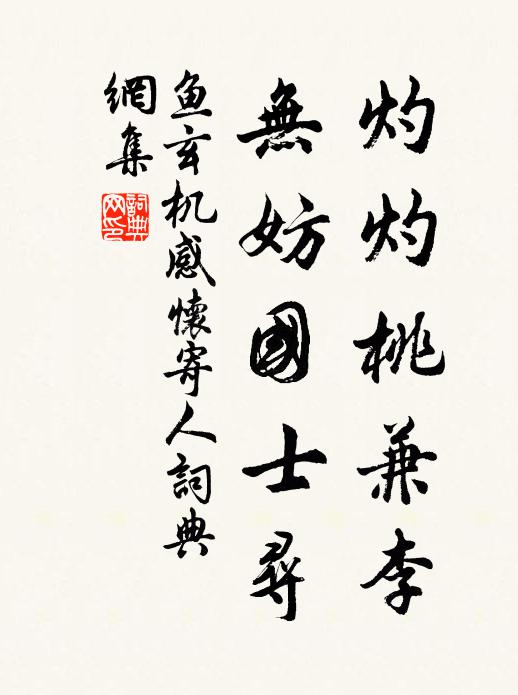 灼灼桃兼李
無妨國士尋
鱼玄机感懷寄人詞典
網集
詞典网印